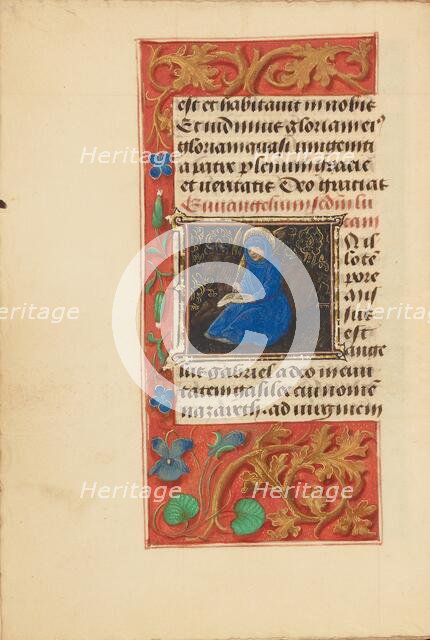 est et habitauit in nobis
Et uidimus gloriam eiꝰ
gloriam quasi unigeniti
a patre plenum gracie
et ueritatis Deo gracias
Euuangelium sedm lu
cam
N il
lo te
pore
mis
sus
est
ange
lus gabriel a deo in ciui
tatem galilee cui nomē
nazareth. ad uirginem
Heritage Heritage Heritage
Heritage Heritage Heritage
Heritage Heritage Heritage